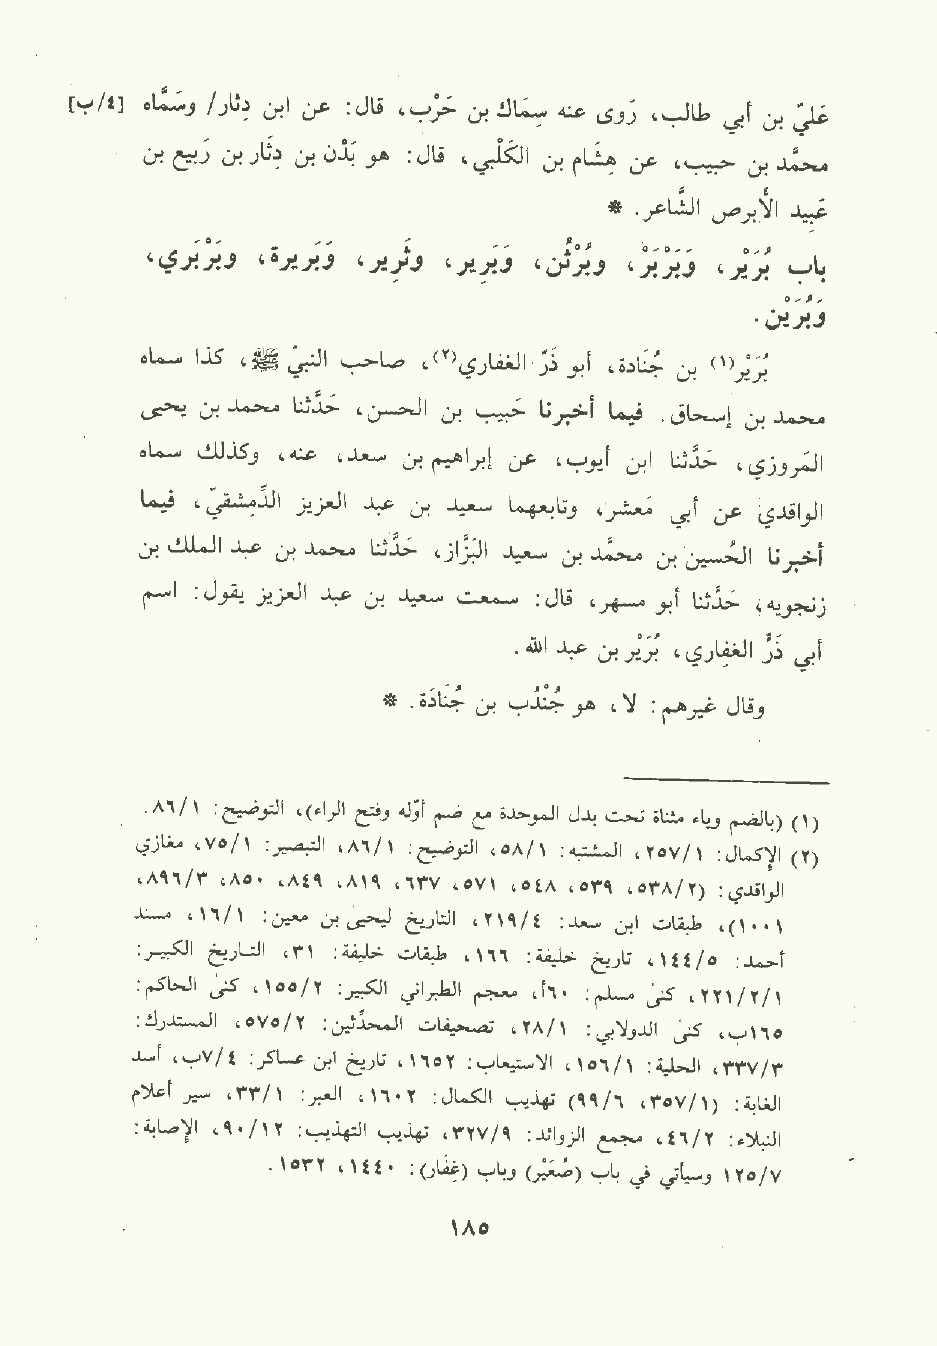 عَليّ بن أبي طالب، رَوى عنه سِمَاك بن حَرْب، قال: عن ابن دِثار/ وسَمَّاه [٤/ب]
محمَّد بن حبيب، عن هِشَام بن الكَلْبي، قال: هو بَدَن بن دِثَار بن رَبيع بن
عَبِيد الأبرص الشَّاعر. *
باب بُرَيْر، وَبَرْبَرْ، وبُرْثُن، وَبَرِير، وثَرِير، وَبَرَيرة، وَبَرْبَري،
وَبُرَيْن.
بُرَيْر(١) بن جُنادة، أبو ذَرّ الغفاري(٢)، صاحب النبيّ ﷺ، كذا سماه
محمد بن إسحاق. فيما أخبرنا خَبيب بن الحسن، حَدَّثنا محمد بن يحيى
المَروزي، حَدَّثنا ابن أيوب، عن إبراهيم بن سعد، عنه، وكذلك سماه
الواقدي عن أبي مَعشر، وتابعهما سعيد بن عبد العزيز الدِّمشقيّ، فيما
أخبرنا الحُسين بن محمَّد بن سعيد البَزَّاز، حَدَّثنا محمد بن عبد الملك بن
زنجويه، حَدَّثنا أبو مسهر، قال: سمعت سعيد بن عبد العزيز يقول: اسم
أبي ذَرّ الغِفاري، بُرَيْر بن عبد الله.
وقال غيرهم: لا، هو جُنْدُب بن جُنَادَة. *
(١) (بالضم وياء مثناة تحت بدل الموحدة مع ضم أوّله وفتح الراء)، التوضيح: ٨٦/١.
(٢) الإكمال: ٢٥٧/١، المشتبه: ٥٨/١، التوضيح: ٨٦/١، التبصير: ٧٥/١، مغازي
الواقدي: (٥٣٨/٢، ٥٣٩، ٥٤٨، ٥٧١، ٦٣٧، ٨١٩، ٨٤٩، ٨٥٠، ٨٩٦/٣،
١٠٠١)، طبقات ابن سعد: ٢١٩/٤، التاريخ ليحيى بن معين: ١٦/١، مسند
أحمد: ١٤٤/٥، تاريخ خليفة: ١٦٦، طبقات خليفة: ٣١، التاريخ الكبير:
٢٢١/٢/١، كنى مسلم: ٦٠أ، معجم الطبراني الكبير: ١٥٥/٢، كنى الحاكم:
١٦٥ب، كنى الدولابي: ٢٨/١، تصحيفات المحدِّثين: ٥٧٥/٢، المستدرك:
٣٣٧/٣، الحلية: ١٥٦/١، الاستيعاب: ١٦٥٢، تاريخ ابن عساكر: ٧/٤ب، أسد
الغابة: (٣٥٧/١، ٩٩/٦) تهذيب الكمال: ١٦٠٢، العبر: ٣٣/١، سير أعلام
النبلاء: ٤٦/٢، مجمع الزوائد: ٣٢٧/٩، تهذيب التهذيب: ٩٠/١٢، الإصابة:
١٢٥/٧ وسيأتي في باب (صُعَيْر) وباب (غِفَار): ١٤٤٠، ١٥٣٢.
١٨٥